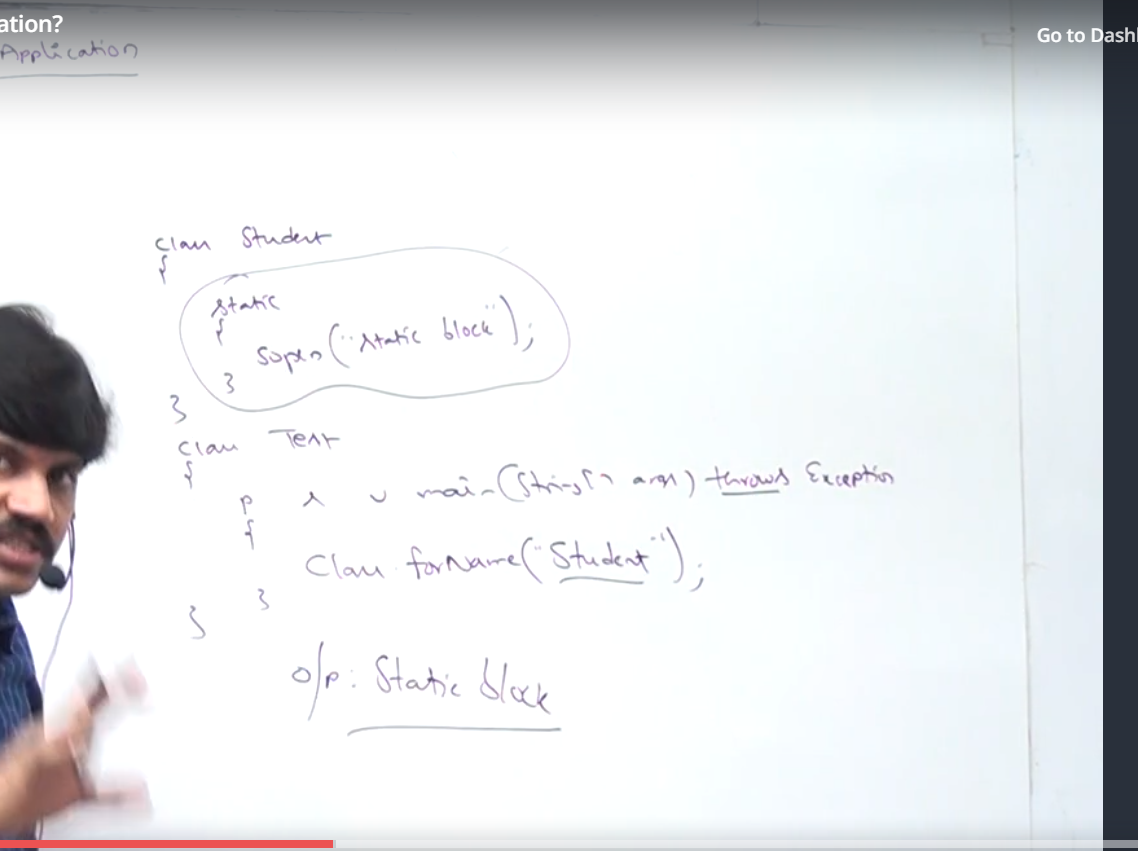 ation?
Go to Dashl
Application
class Student
{
static
{
Sopln("static block");
}
}
class Test
{
p s v main(String[] args) throws Exception
{
Class.forName("Student");
}
}
o/p: Static block